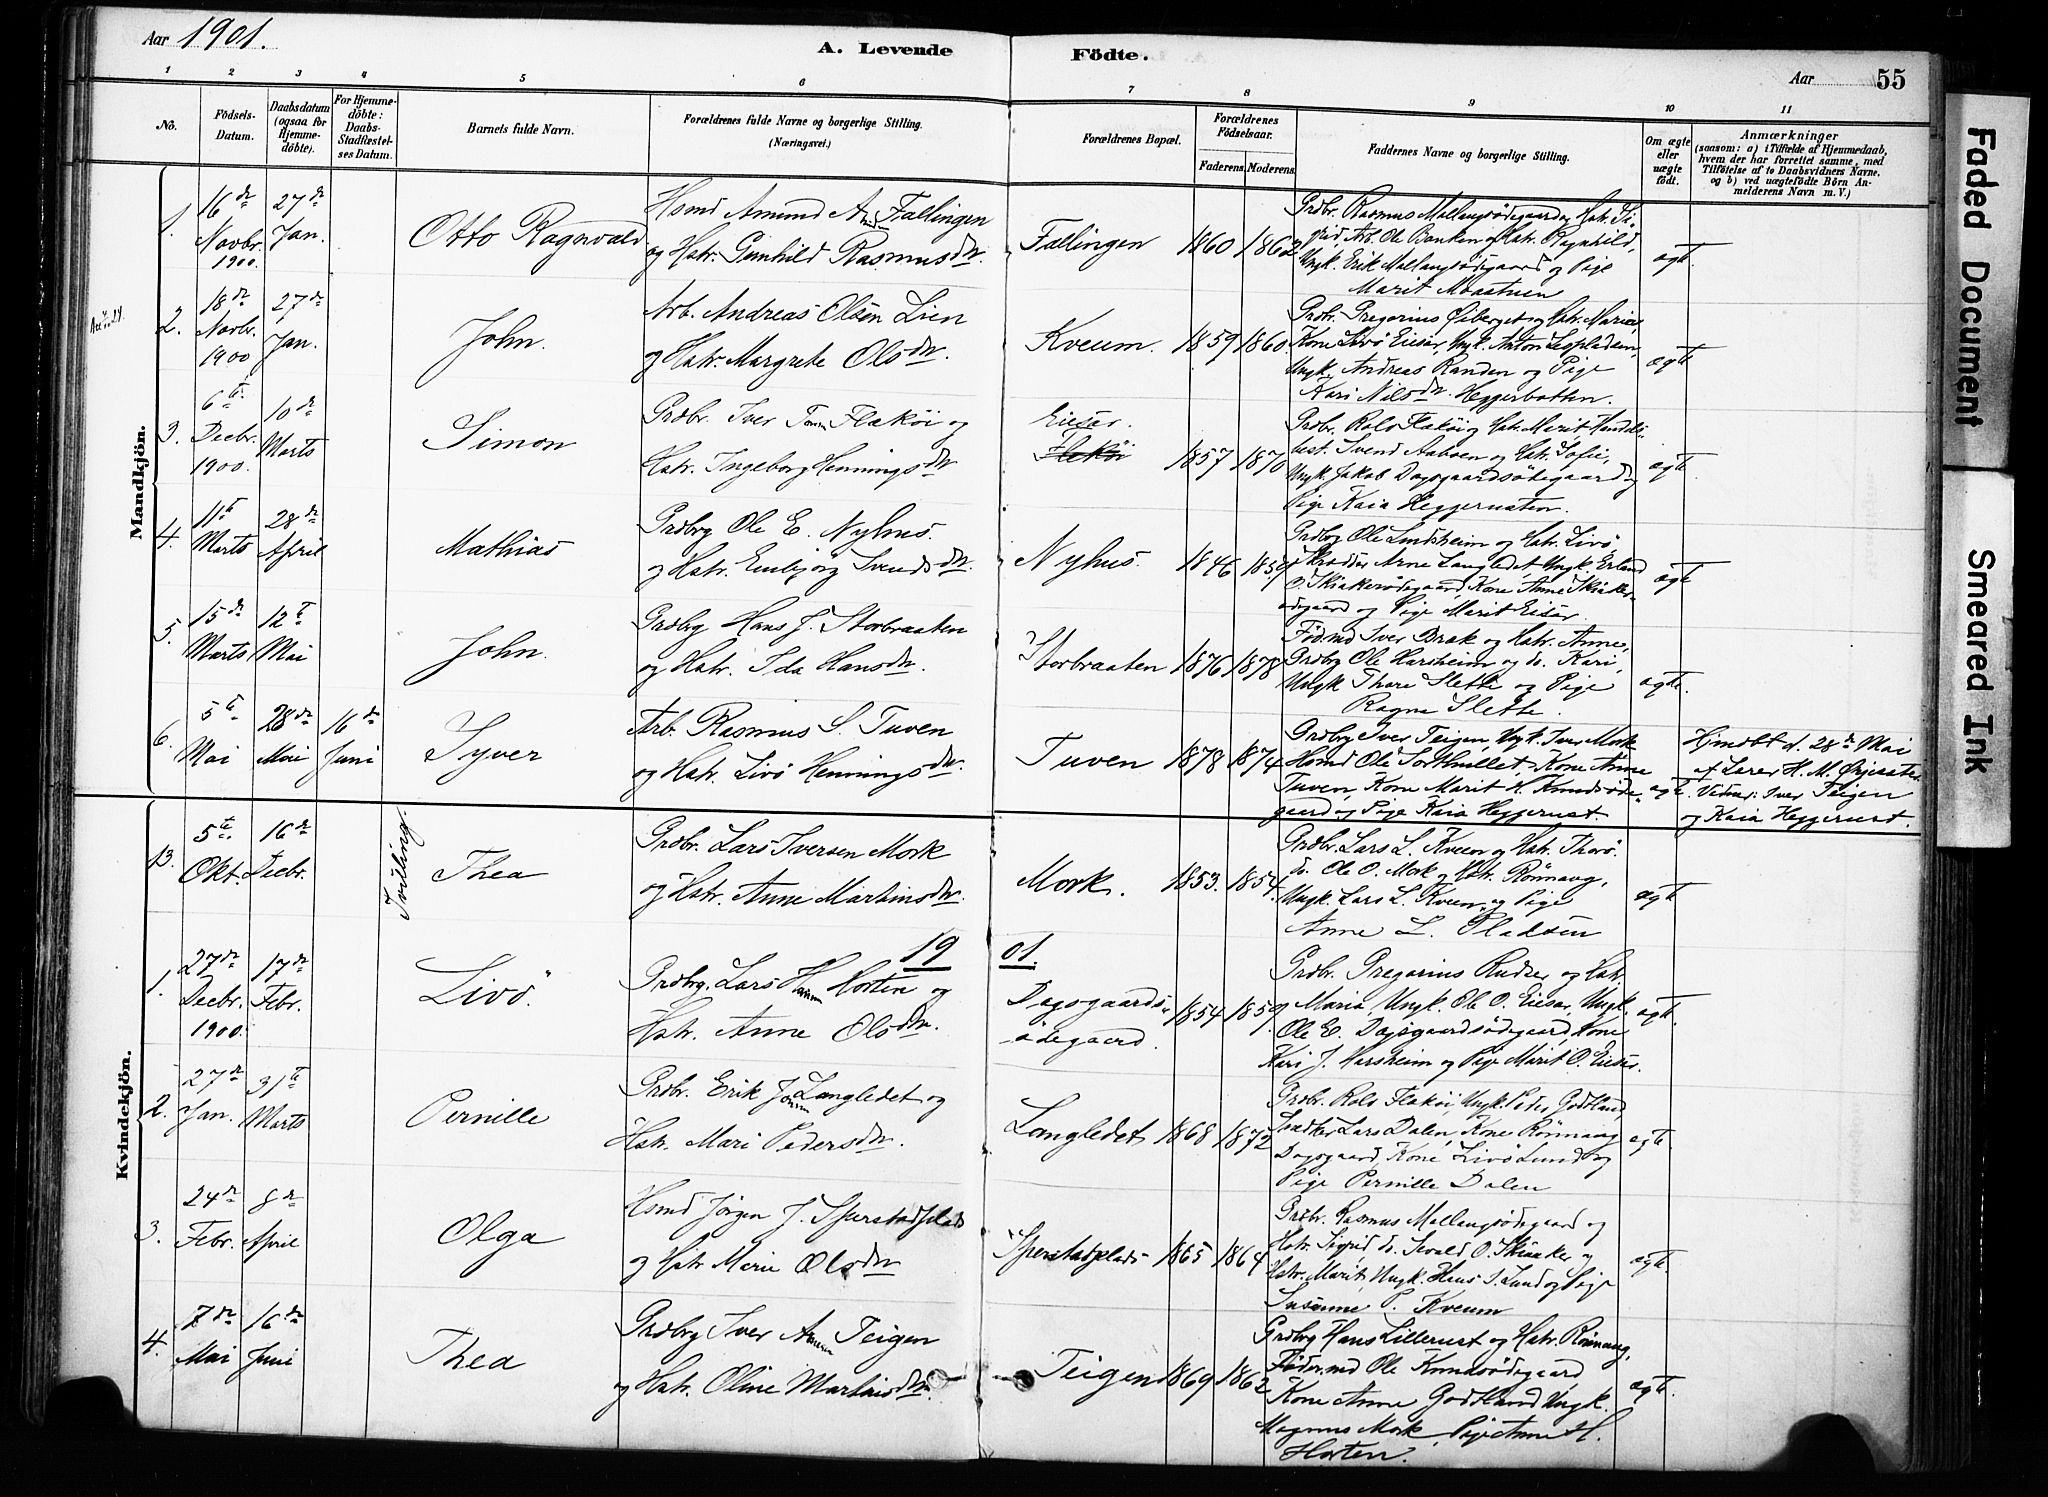 Aar 1901.
A. Levende Födte.
Aar 55
1 2 3 4 5 6 7 8 9 10 11
No.
Födsels-Datum.
Daabsdatum (ogsaa for Hjemme-döbte).
For Hjemme-döbte: Daabs-Stadfæstel-ses Datum.
Barnets fulde Navn.
Forældrenes fulde Navne og borgerlige Stilling.
(Næringsvei.)
Forældrenes Bopæl.
Forældrenes Födselsaar.
Faderens Moderens
Faddernes Navne og borgerlige Stilling.
Om ægte eller uægte födt.
Anmærkninger
(saasom: a) i Tilfælde af Hjemmedaab, hvem der har forrettet samme, med Tilföielse af to Daabsvidners Navne, og b) ved uægtefödte Börn Anmelderens Navn m. V.)
Mandkjön.
1. 16de Novbr. 1900. 27de Jan. Otto Ragnvald
Hsmd Amund Fallingen
og Hstr. Gunhild Rasmusdtr.
Fallingen 1860 1862
Grdbr. Rasmus Mallangsödegaard og Hstr. Si-
grid, Arb. Ole Banken og Hstr. Ragnhild,
Ungk. Erik Mallangsödegaard og Pige
Marit Moastuen
ægte.
2. 18de Novbr. 1900 27de Jan. John.
Arb. Andreas Olsen Lien
og Hstr. Margrete Olsdtr.
Kveum. 1859 1860
Grdbr. Gregorius Öiberget og Hstr. Marie,
Kone Livö Eiesar, Ungk. Anton
Ungk. Andreas Randen og Pige
Kari Nilsdtr. Heggerbotten.
ægte
3. 6te Decbr. 1900. 10de Marts Simon
Grdbr. Iver Flaköi og
Hstr. Ingeborg Henningsdtr.
Eiesar.
Flaköi
1857 1870
Grdbr. Rolv Flaköi og Hstr. Marit Handels-
best. Svend Aaboen og Hstr. Sofie,
Ungk. Jakob Dagsgaardsödegaard og
Pige Kaia
ægte
4. 11te Marts 28de April Mathias
Grdbrg Ole E. Nyhus.
og Hstr. Embjörg Svendsdtr.
Nyhus. 1846
Grdbrg Ole og Hstr. Livö,
Skrædder Arne Langledet Ungk. Erland
O. Skiakersödegaard, Kone Anne Skiaker-
ödegaard og Pige Marit Eiesar.
ægte
5. 15de Marts 12te Mai John.
Grdbrg Hans J. Storbraaten
og Hstr. Ida Hansdtr.
Storbraaten 1876 1878
Föd.md Iver Brak og Hstr. Anne,
Grdbrg Ole Harsheim og do. Kari,
Ungk Thore Slette og Pige
Ragna Slette.
ægte.
6. 5te Mai 28de Mai 16de Juni Syver
Arb. Rasmus S. Tuven
og Hstr. Livö Henningsdtr.
Tuven 1878 1874
Grdbrg Iver Teigen, Ungk. Iver Mork
Hsmd Ole Sorthullet, Kone Anne
Tuven, Kone Marit H. Knudsöde-
gaard og Pige Kaia Heggerust.
ægte
Hjmdbt d. 28de Mai
af Lærer H. M.
Vidner: Iver Teigen
og Kaia Heggerust.
Kvindekjön.
13. 5te Okt. 16de Decbr. Tvilling. Thea
Grdbr. Lars Iversen Mork
og Hstr. Anne Martinsdtr.
Mork. 1853. 1854.
Grdbr. Lars L. Kveen og Hstr. Thorö.
do. Ole O. Mork og Hstr. Rönnaug,
Ungk. Lars L. Kveen og Pige
Anne L. Pladsen
ægte
1901.
1. 27de Decbr. 1900. 17de Febr. Livö.
Grdbrg. Lars Horten og
Hstr. Anne Olsdtr.
Dagsgaards-
ödegaard.
1854 1859
Grdbr. Gregorius Rudser og Hstr.
Maria, Ungk. Ole O. Eiesar, Ungk.
Ole E. Dagsgaardsödegaard, Kone
Kari J. Harsheim og Pige Marit O. Eiesar.
ægte.
2. 27de Jan. 31te Marts Pernille
Grdbr. Erik Langledet og
Hstr. Mari Pedersdtr.
Langledet 1868 1872
Grdbr. Rolv Flaköi, Ungk. Peder Godtland,
Lars Dalen, Kone Rönnaug
Dagsgaard, Kone Livö Lund og
Pige Pernille Dalen
ægte.
3. 24de Febr. 8de April Olga
Hsmd Jörgen J. Sperstadplads
og Hstr Marie Olsdtr
Sperstadplads 1865 1864
Grdbr. Rasmus Mallangsödegaard og
Hstr. Sigrid do. Sevald O. Skiaker og
Hstr. Marit, Ungk. Hans S. Lund og Pige
Susanne P. Kveum
ægte.
4. 7de Mai 16de Juni Thea
Grdbrg Iver Teigen
og Hstr. Oline Martinsdtr.
Teigen 1869 1862
Grdbrg Hans Lillerust og Hstr. Rönnaug,
Föder.md Ole Knudsödegaard,
Kone Anne Godtland Ungk.
Magnus Mork, Pige Anne H.
Horten.
ægte.
Faded Document
Smeared Ink